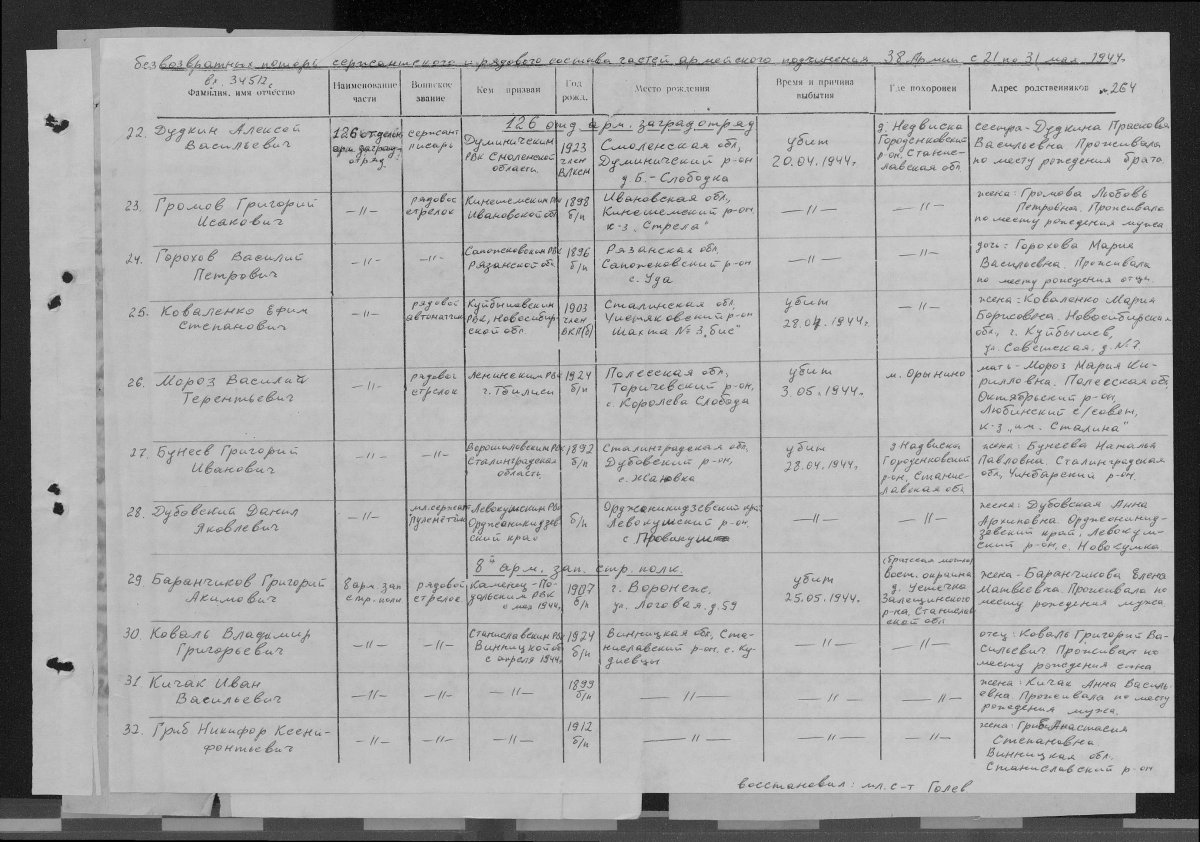 безвозвратных потерь сержантского и рядового состава частей армейского подчинения 38 Армии с 21 по 31 мая 1944г.
вх. 34512с
Фамилия, имя отчество
Наименование части
Воинское звание
Кем призван
Год рожд.
Место рождения
Время и причина выбытия
Где похоронен
Адрес родственников №264
126 отд арм. заградотряд
22. Дудкин Алексей Васильевич
126 отдельн арм. заград. отряд.
сержант писарь
Думиничским РВК Смоленской области.
1923 член ВЛКСМ
Смоленская обл, Думиничский р-он д. Б.-Слободка
убит 20.04.1944г.
д. Недвиска Городенковский р-он. Станиславская обл
сестра-Дудкина Прасковья Васильевна Проживала по месту рождения брата.
23. Громов Григорий Исакович
-//-
рядовой стрелок
Кинешемским РВК Ивановской обл
1898 б/п
Ивановская обл, Кинешемский р-он к-з „Стрела"
-//-
-//-
жена: Громова Любовь Петровна. Проживала по месту рождения мужа
24. Горохов Василий Петрович
-//-
-//-
Сапожковским РВК Рязанской обл
1896 б/п
Рязанская обл, Сапожковский р-он с. Уда
-//-
-//-
дочь: Горохова Мария Васильевна. Проживала по месту рождения отца.
25. Коваленко Ефим Степанович
-//-
рядовой автоматчик
Куйбышевским РВК, Новосибирской обл
1903 член ВКП(б)
Сталинская обл Чистяковский р-он шахта №3„бис"
убит 28.04.1944г.
-//-
жена: Коваленко Мария Борисовна. Новосибирская обл, г. Куйбышев, ул. Советская, д. №7
26. Мороз Василий Терентьевич
-//-
рядовой стрелок
Ленинским РВК г. Тбилиси
1924 б/п
Полесская обл, Торичевский р-он, с. Королева Слобода
убит 3.05.1944г.
м. Орынино
мать-Мороз Мария Кирилловна. Полесская обл Октябрьский р-он, Любинский с/совет, к-з „им. Сталина"
27. Бунеев Григорий Иванович
-//-
-//-
Ворошиловским РВК Сталинградская область
1892 б/п
Сталинградская обл, Дубовский р-он,
убит 28.04.1944г.
д Надвиска Городенковский р-он, Станиславская обл
жена: Бунеева Наталья Павловна. Сталинградская обл, р-он.
28. Дубовский Данил Яковлевич
-//-
мл.сержант пулеметчик
Левокумским РВК Орджоникидзевский край
б/п
Орджоникидзевский край Левокумский р-он. с
-//-
-//-
жена: Дубовская Анна Архиповна. Орджоникидзевский край, Левокумский р-он, с. Новокумка
8й арм. зап. стр. полк.
29. Баранчиков Григорий Акимович
8 арм. зап стр. полк
рядовой стрелок
Каменец-Подольским РВК с мая 1944г.
1907 б/п
г. Воронеж. ул. Логовая, д. 59
убит 25.05.1944г.
братская могила вост. окраина д. Устечка Залещинского р-на, Станиславской обл
жена-Баранчикова Елена Матвеевна. Проживала по месту рождения мужа
30. Коваль Владимир Григорьевич
-//-
-//-
Станиславским РВК Винницкой обл с апреля 1944г.
1924 б/п
Винницкая обл, Станиславский р-он. с. Кудиевцы
-//-
-//-
отец: Коваль Григорий Васильевич Проживал по месту рождения сына
31 Кичак Иван Васильевич
-//-
-//-
-//-
1899 б/п
-//-
-//-
-//-
жена: Кичак Анна Васильевна. Проживала по месту рождения мужа.
32. Гриб Никифор Ксенифонтьевич
-//-
-//-
-//-
1912 б/п
-//-
-//-
-//-
жена: Гриб Анастасия Степановна Винницкая обл. Станиславский р-он
восстановил: мл. с-т Голев